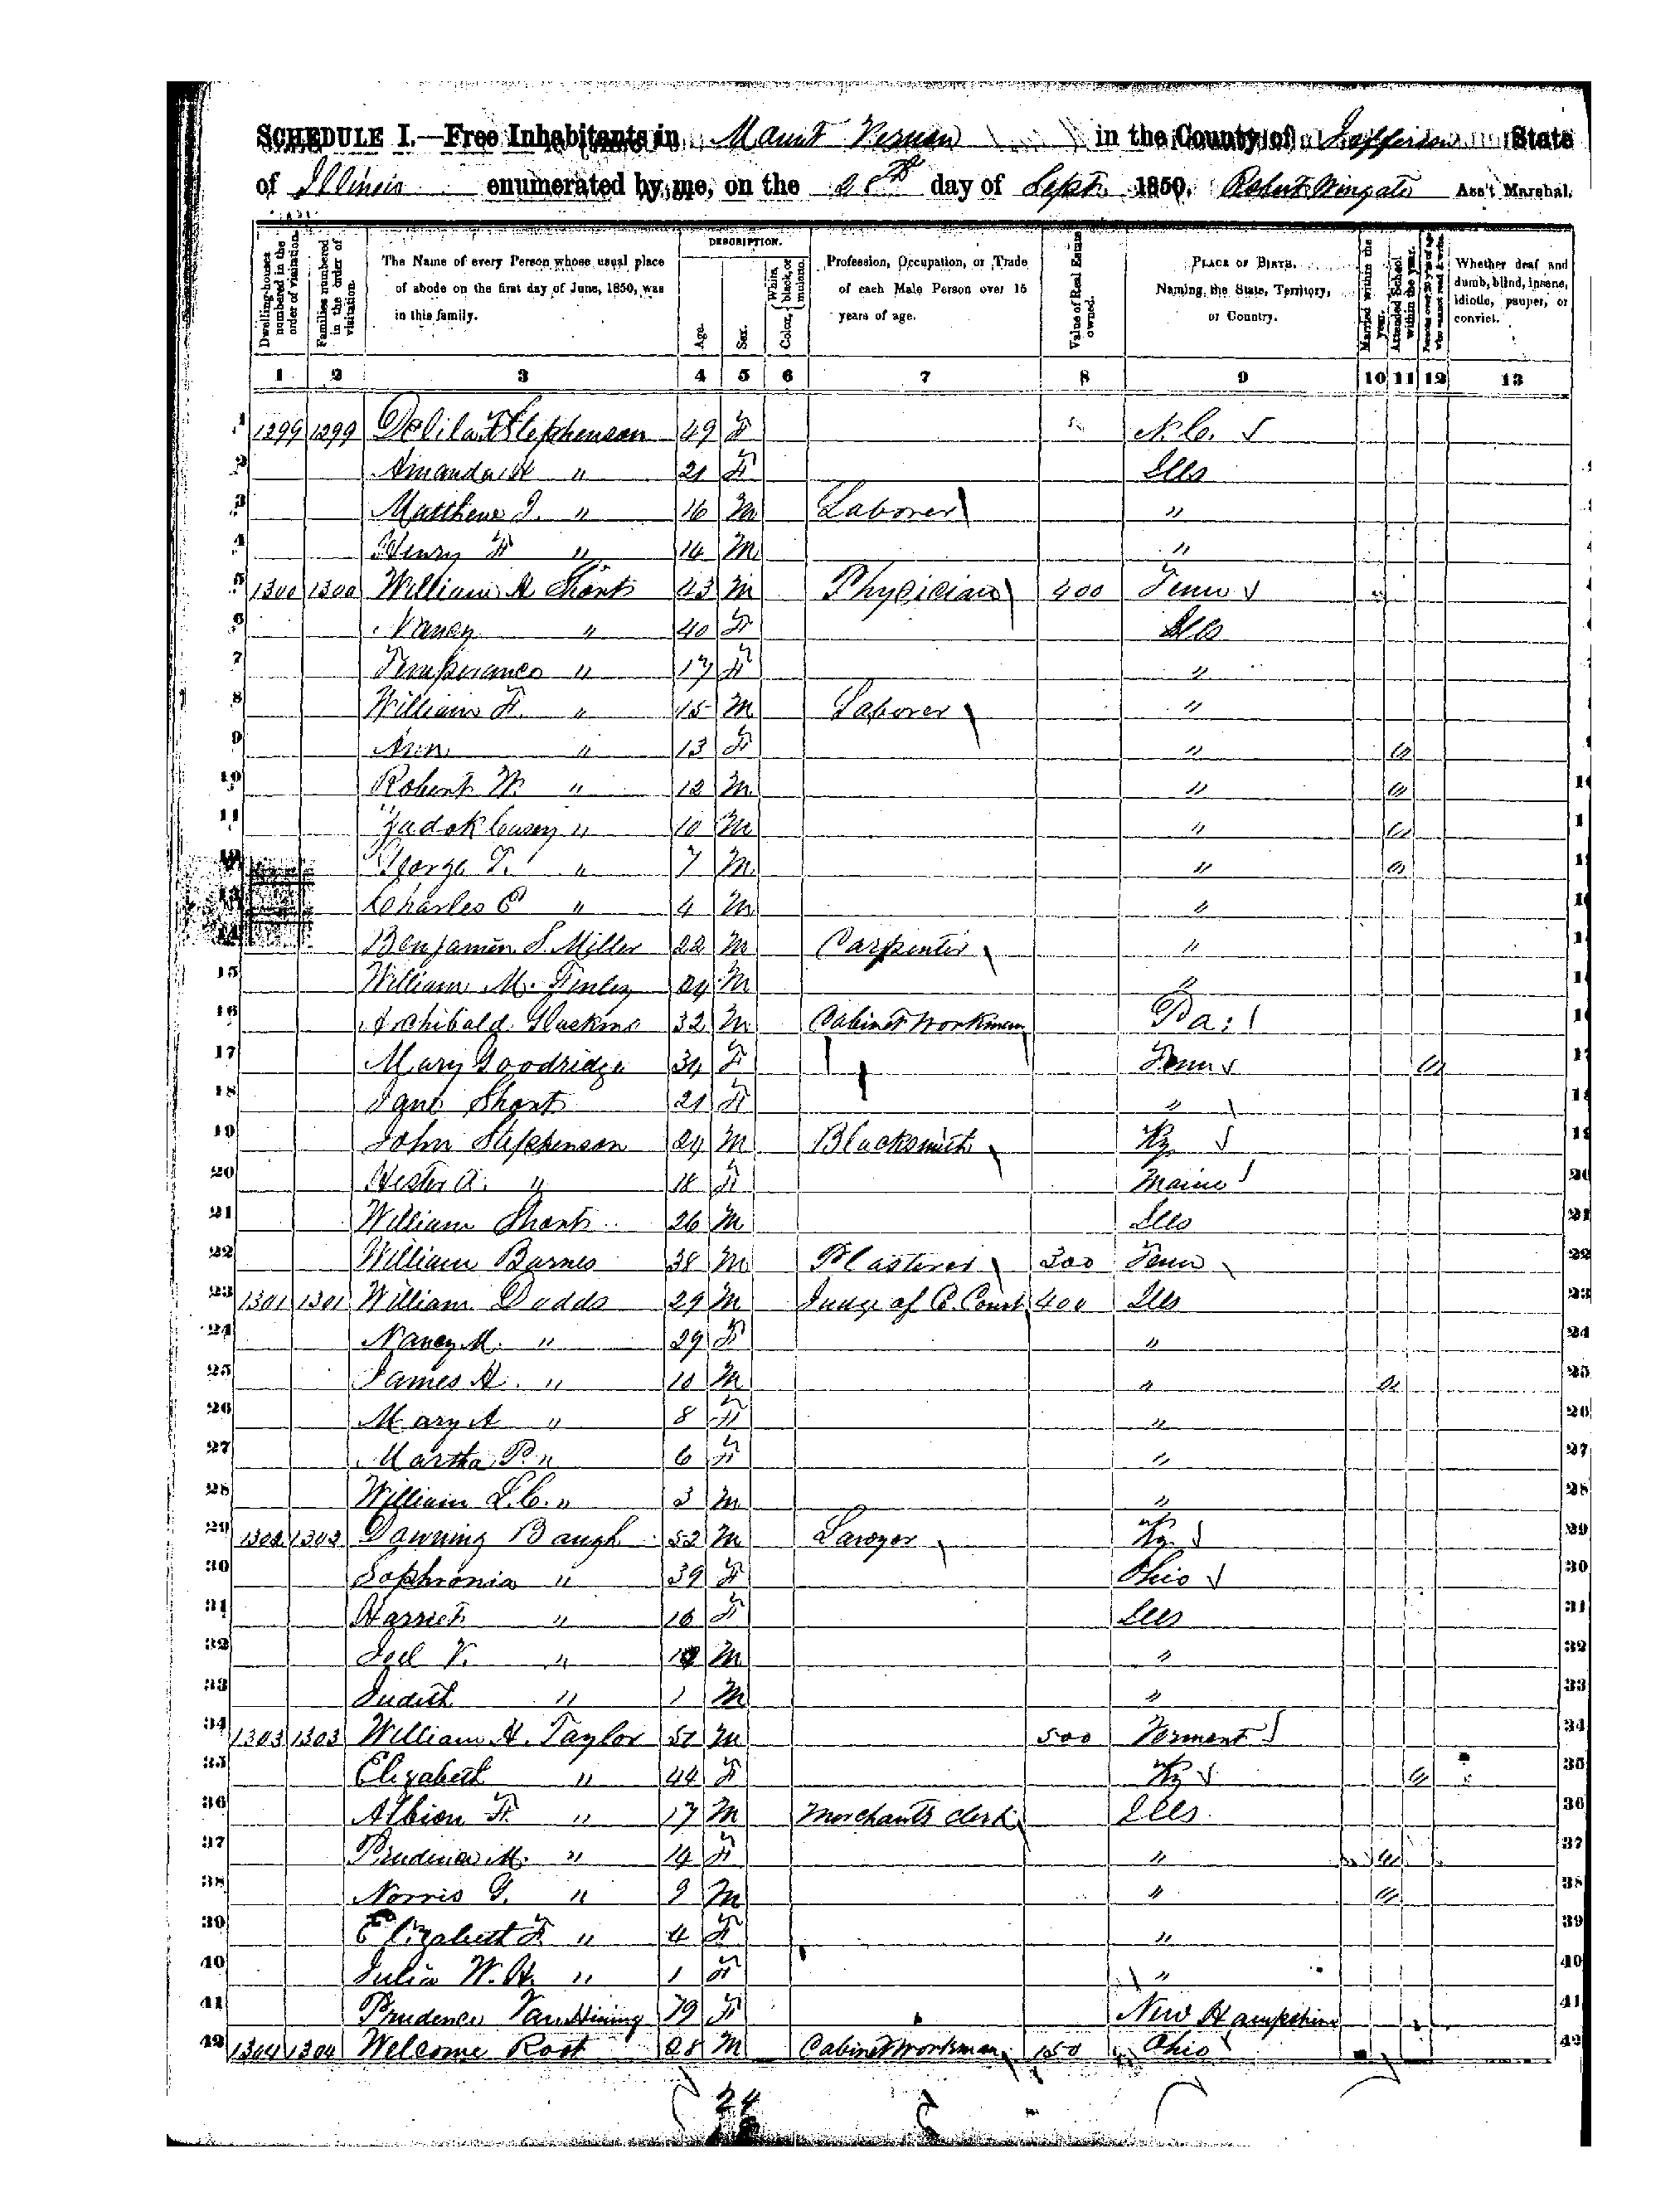 SCHEDULE I.—Free Inhabitants in Mount Vernon in the County of Jefferson State
of Illinois enumerated by me, on the 28th day of Sept. 1850. Robert Wingate Ass't Marshal.
Dwelling-houses numbered in the order of visitation.
Families numbered in the order of visitation.
The Name of every Person whose usual place of abode on the first day of June, 1850, was in this family.
DESCRIPTION.
Age.
Sex.
Color, { White, black, or mulatto.
Profession, Occupation, or Trade of each Male Person over 15 years of age.
Value of Real Estate owned.
PLACE OF BIRTH. Naming the State, Territory, or Country.
Married within the year.
Attended School within the year.
Persons over 20 y'rs of age who cannot read & write.
Whether deaf and dumb, blind, insane, idiotic, pauper, or convict.
1 2 3 4 5 6 7 8 9 10 11 12 13
1 1299 1299 Delila Stephenson 49 F N.C.
2 Amanda H " 21 F Ills
3 Matthew J. " 16 M Laborer "
4 Henry F " 14 M "
5 1300 1300 William H Short 43 M Physician 400 Tenn
6 Nancy " 40 F Ills
7 Temperance " 17 F "
8 William F. " 15 M Laborer "
9 Ann " 13 F " "
10 Robert W. " 12 M " "
11 Zadok Casey " 10 M " "
12 George T. " 7 M " "
13 Charles C " 4 M "
14 Benjamin S. Miller 22 M Carpenter "
15 William M. Finley 24 M "
16 Archibald 32 M Cabinet Workman Pa.
17 Mary Goodridge 34 F Tenn "
18 Jane Short 21 F "
19 John Stephenson 24 M Blacksmith Ky
20 Hester A. " 18 F Maine
21 William Short 26 M Ills
22 William Barnes 38 M Plasterer 300 Tenn
23 1301 1301 William Dodds 29 M Judge of C. Court 400 Ills
24 Nancy M. " 29 F "
25 James H. " 10 M " "
26 Mary A " 8 F "
27 Martha P. " 6 F "
28 William L.C. " 3 M "
29 1302 1302 Downing Baugh 52 M Lawyer Ky.
30 Sophronia " 39 F Ohio
31 Harriet " 16 F Ills
32 Joel V. " M "
33 Judith " 1 M "
34 1303 1303 William H. Taylor 51 M 500 Vermont
35 Elizabeth " 44 F Ky "
36 Albion F. " 17 M Merchants clerk Ills
37 Prudence M. " 14 F " "
38 Norris G. " 9 M " "
39 Elizabeth F. " 4 F "
40 Julia W.H. " 1 F "
41 Prudence 79 F New Hampshire
42 1304 1304 Welcome Root 28 M Cabinet workman 150 Ohio
24